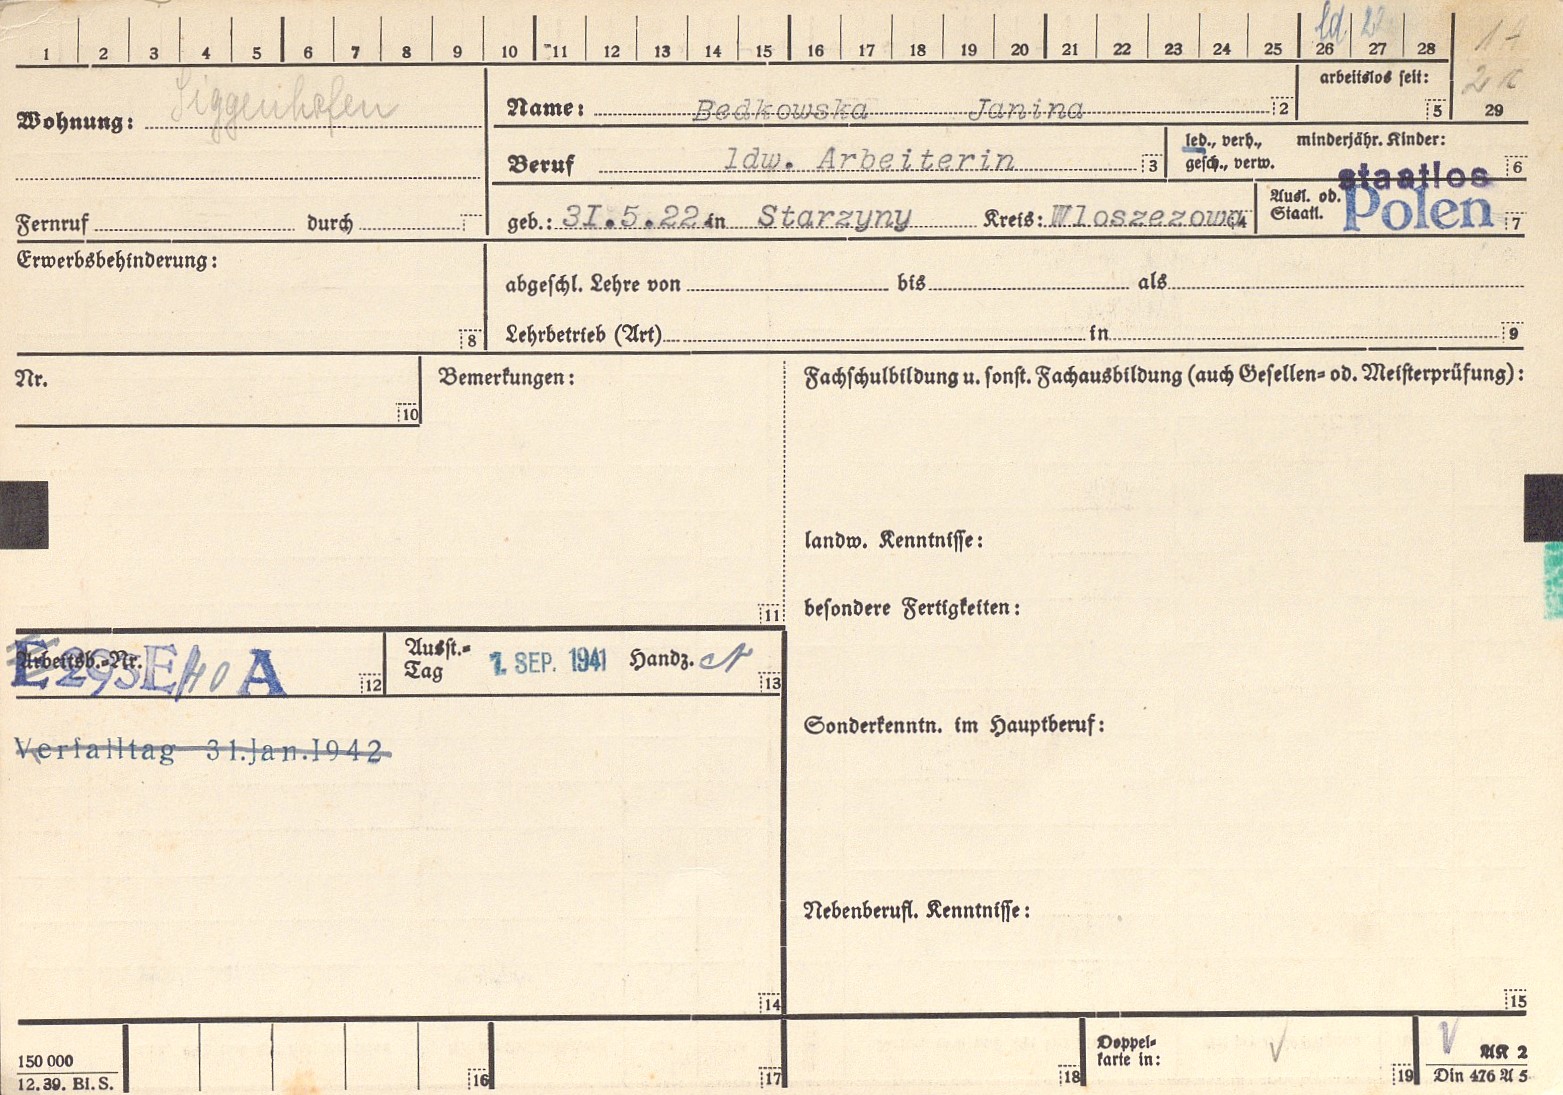 1 2 3 4 5 6 7 8 9 10 11 12 13 14 15 16 17 18 19 20 21 22 23 24 25 26 27 28
ld 22
29
Wohnung: Siggenhofen
Name: Bedkowska Janina 2
arbeitslos seit: 5
Beruf ldw. Arbeiterin 3
led., verh., minderjähr. Kinder:
gesch., verw. 6
Fernruf durch
geb.: 3I.5.22 in Starzyny Kreis: Wloszezowa 4
Ausl. od. Staatl. staatlos Polen 7
Erwerbsbehinderung: 8
abgeschl. Lehre von bis als
Lehrbetrieb (Art) in 9
Nr. 10
Bemerkungen: 11
Fachschulbildung u. sonst. Fachausbildung (auch Gesellen- od. Meisterprüfung):
landw. Kenntnisse:
besondere Fertigkeiten:
Arbeitsb.-Nr. E 293E/40 A 12
Ausst.-Tag 1. SEP. 1941 Handz. 13
Verfalltag 31.Jan.1942
Sonderkenntn. im Hauptberuf:
Nebenberufl. Kenntnisse:
14
15
150 000
12.39. Bl.S.
16
17
18
Doppel-
karte in:
19
AK 2
Din 476 A 5